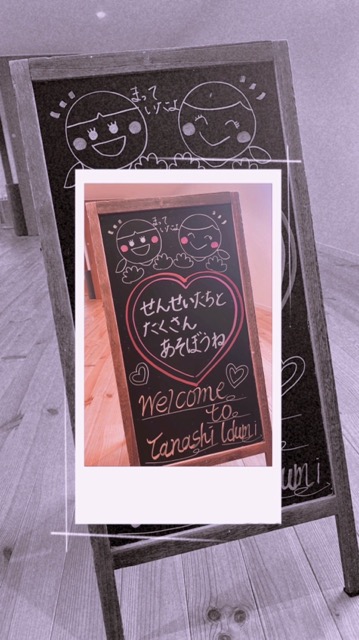 まって
いたよ
まって
いたよ
せんせいたちと
たくさん
あそぼうね
Welcome
to
Tanashi Idumi